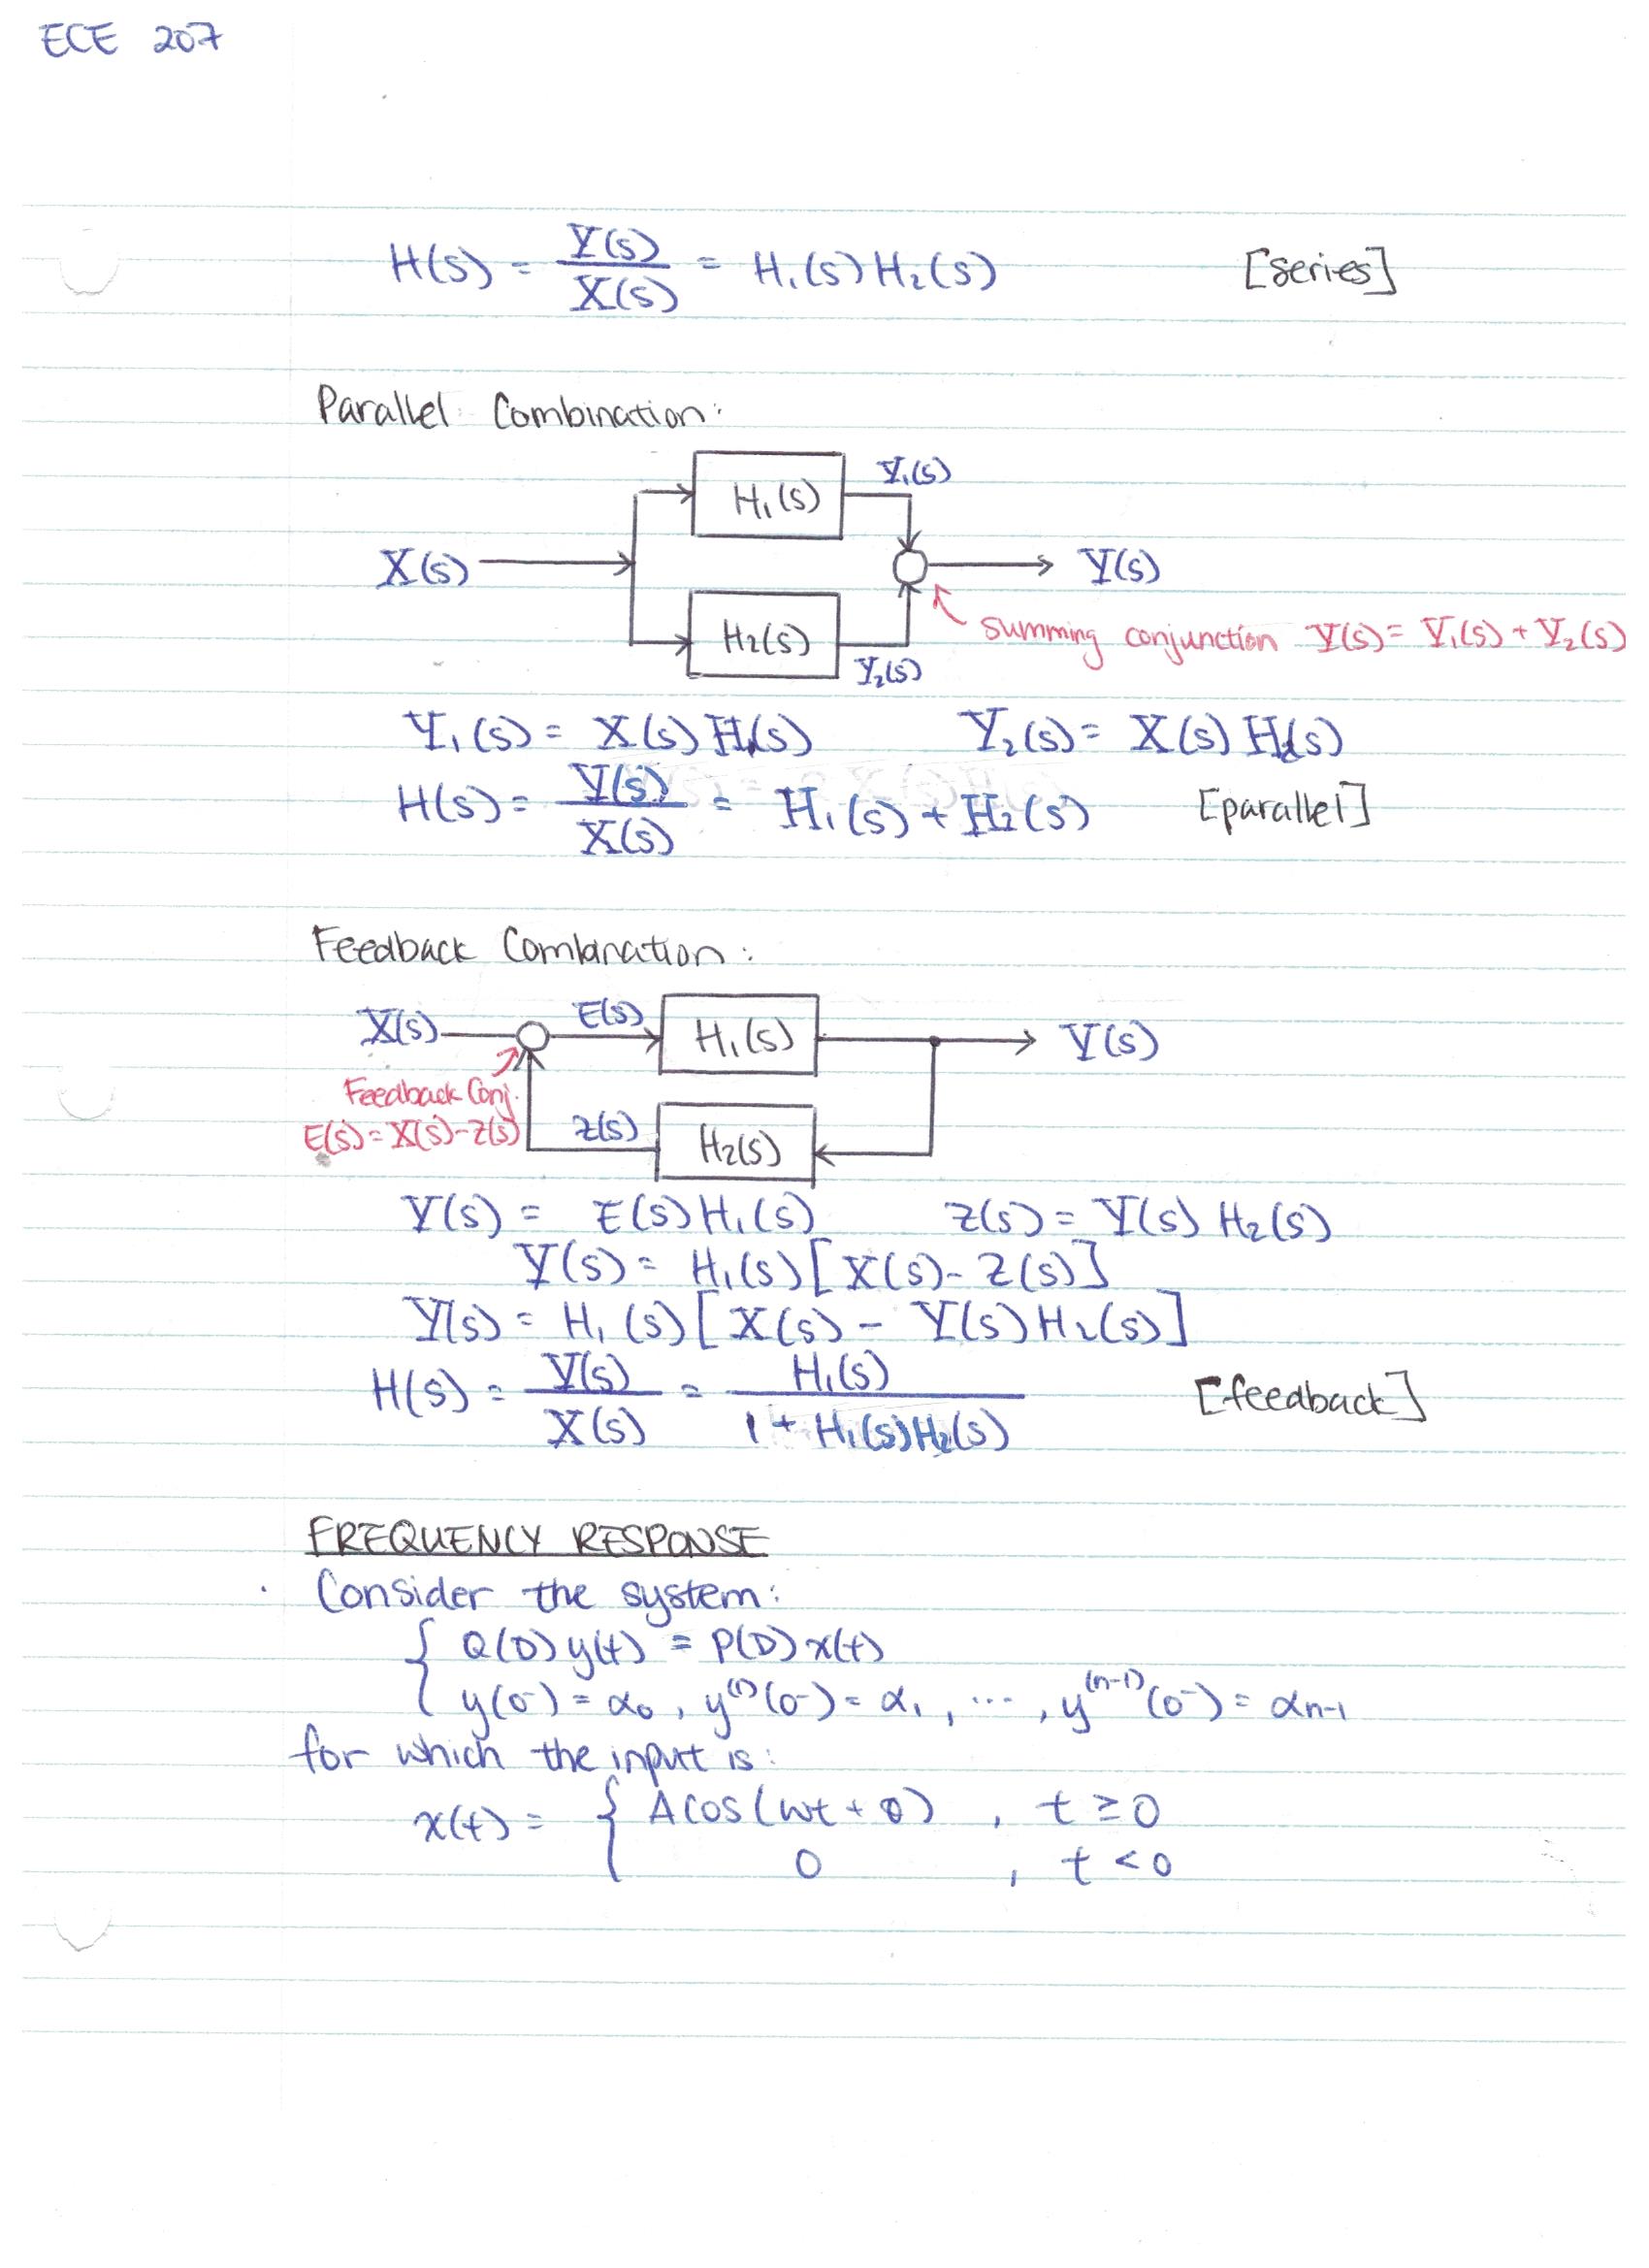 ECE 207
H(s) = Y(s)/X(s) = H₁(s) H₂(s) [series]
Parallel Combination:
H₁(s) Y₁(s)
X(s) Y(s)
H₂(s) summing conjunction Y(s) = Y₁(s) + Y₂(s)
Y₂(s)
Y₁(s) = X(s) H₁(s) Y₂(s) = X(s) H₂(s)
H(s) = Y(s)/X(s) = H₁(s) + H₂(s) [parallel]
Feedback Combination:
X(s) E(s) H₁(s) Y(s)
Feedback Conj.
E(s) = X(s) - Z(s) Z(s) H₂(s)
Y(s) = E(s) H₁(s) Z(s) = Y(s) H₂(s)
Y(s) = H₁(s) [X(s) - Z(s)]
Y(s) = H₁(s) [X(s) - Y(s) H₂(s)]
H(s) = Y(s)/X(s) = H₁(s)/(1 + H₁(s)H₂(s)) [feedback]
FREQUENCY RESPONSE
· Consider the system:
{ Q(D) y(t) = P(D) x(t)
y(0⁻) = α₀, y⁽¹⁾(0⁻) = α₁, ..., y⁽ⁿ⁻¹⁾(0⁻) = αn-1
for which the input is:
x(t) = { A cos(ωt + θ) , t ≥ 0
0 , t < 0